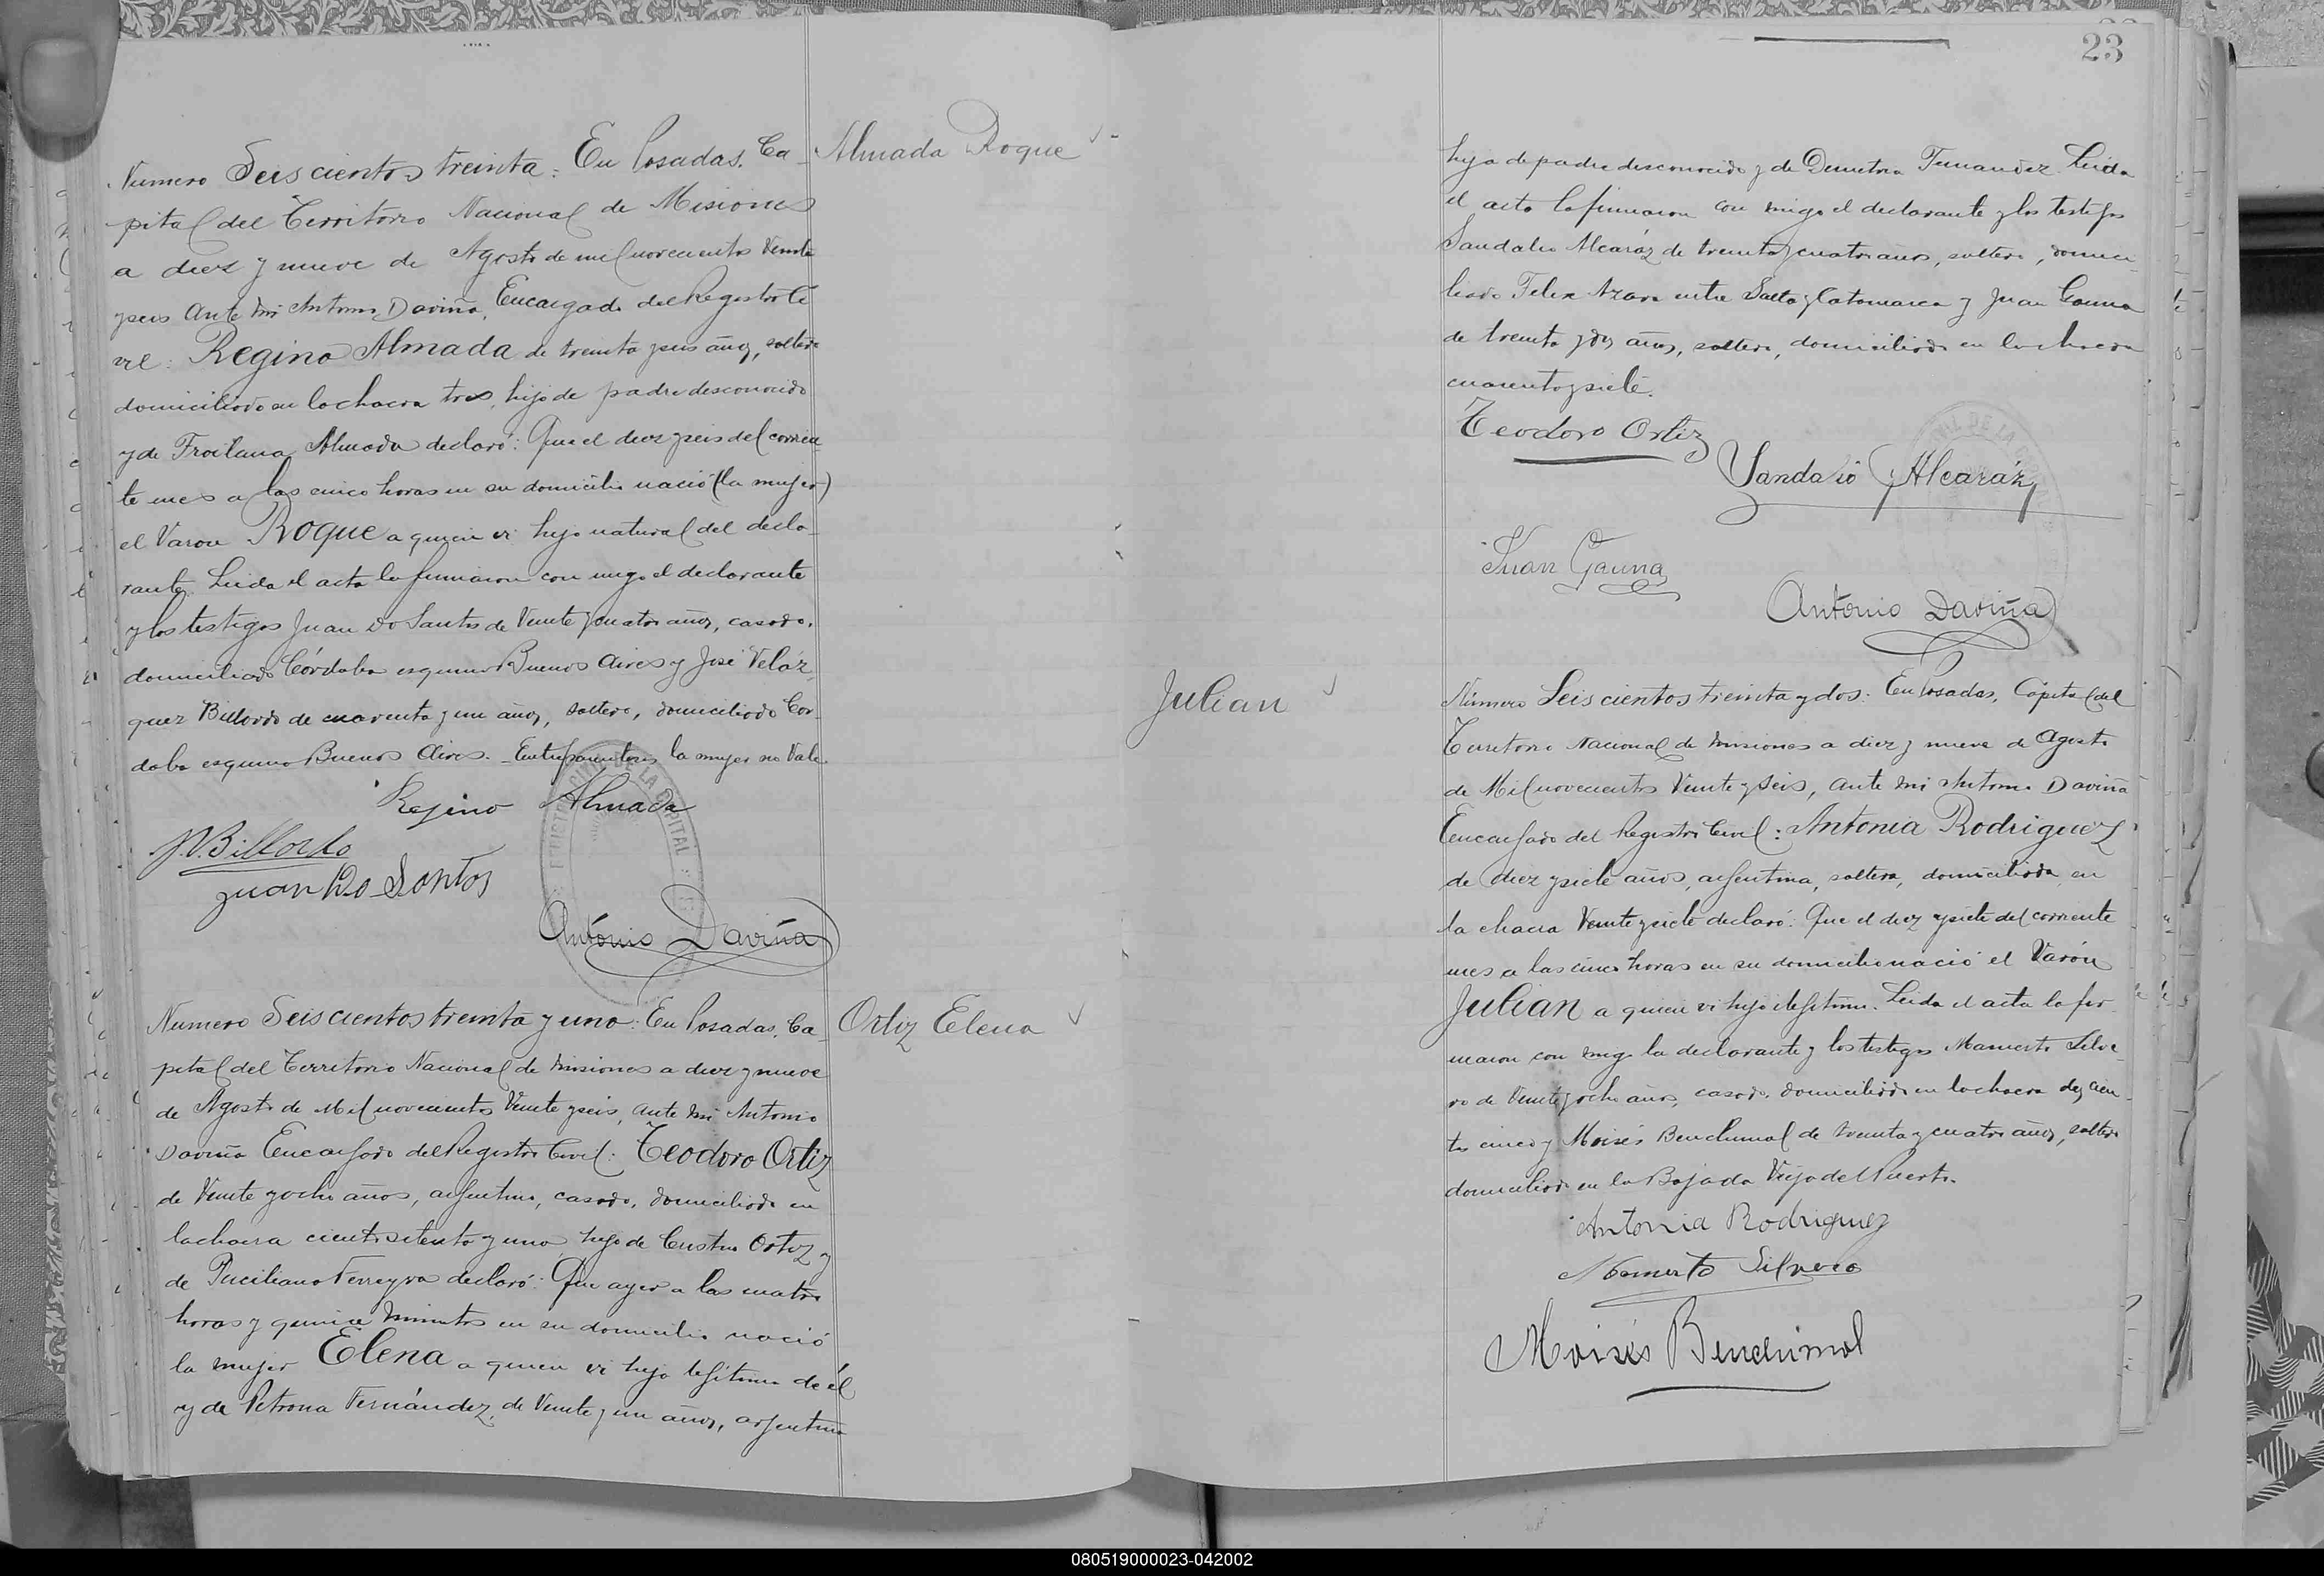 Almada Roque
Número Seiscientos treinta: En Posadas, Ca-
pital del Territorio Nacional de Misiones
a diez y nueve de Agosto de mil novecientos Veinte
y seis Ante mi Antonio Daviña, Encargado del Registro Ci
vil: Regino Almada de treinta y seis años, soltero
domiciliado en la chacra tres, hijo de padre desconocido
y de Froilana Almada declaró: Que el diez y seis del corrien-
te mes a las cinco horas en su domicilio nació (la mujer)
el Varon Roque a quien vi hijo natural del decla-
rante. Leida el acta la firmaron con migo el declarante
y los testigos Juan Do Santos de Veinte y cuatro años, casado,
domiciliado Córdoba esquina Buenos Aires y José Veláz
quez Billordo de cuarenta y un años, soltero, domiciliado Cor-
doba esquina Buenos Aires. Entreparentesis la mujer no Vale.
Rejino Almada
J.V. Billordo
Juan Do Santos
Antonio Daviña
REGISTRO CIVIL DE LA CAPITAL
Ortiz Elena
Número Seiscientos treinta y uno: En Posadas, Ca-
pital del Territorio Nacional de Misiones a diez y nueve
de Agosto de Mil novecientos Veinte y seis, ante mi Antonio
Daviña Encargado del Registro Civil: Teodoro Ortiz
de Veinte y ocho años, argentino, casado, domiciliado en
la chacra ciento setenta y uno, hijo de Ortiz y
de Ferreyra declaró: Que ayer a las cuatro
horas y quince minutos en su domicilio nació
la mujer Elena a quien vi hija legitima de él
y de Petrona Fernández, de Veinte y un años, argentina
23
hija de padre desconocido y de Demetria Fernandez. Leida
el acta la firmaron con migo el declarante y los testigos
Sandalio Alcaráz de treinta y cuatro años, soltero, domici-
liado Felix Azara entre Salta y Catamarca y Juan Gauna
de treinta y dos años, soltero, domiciliado en la chacra
cuarenta y siete.
Teodoro Ortiz
Sandalio Alcaráz
Juan Gauna
Antonio Daviña
Julian
Número Seiscientos treinta y dos: En Posadas, Capital del
Territorio Nacional de Misiones a diez y nueve de Agosto
de Mil novecientos Veinte y seis, ante mi Antonio Daviña
Encargado del Registro Civil: Antonia Rodriguez
de diez y siete años, argentina, soltera, domiciliada en
la chacra Veinte y siete declaró: Que el diez y siete del corriente
mes a las cinco horas en su domicilio nació el Varón
Julian a quien vi hijo ilegitimo. Leida el acta la fir-
maron con migo la declarante y los testigos Mamerto Silve-
ro de Veinte y ocho años, casado, domiciliado en la chacra dos cien-
tos cinco y Moisés Benchimol de treinta y cuatro años, soltero
domiciliado en la Bajada Vieja del Puerto.
Antonia Rodriguez
Mamerto Silvero
Moisés Benchimol
080519000023-042002